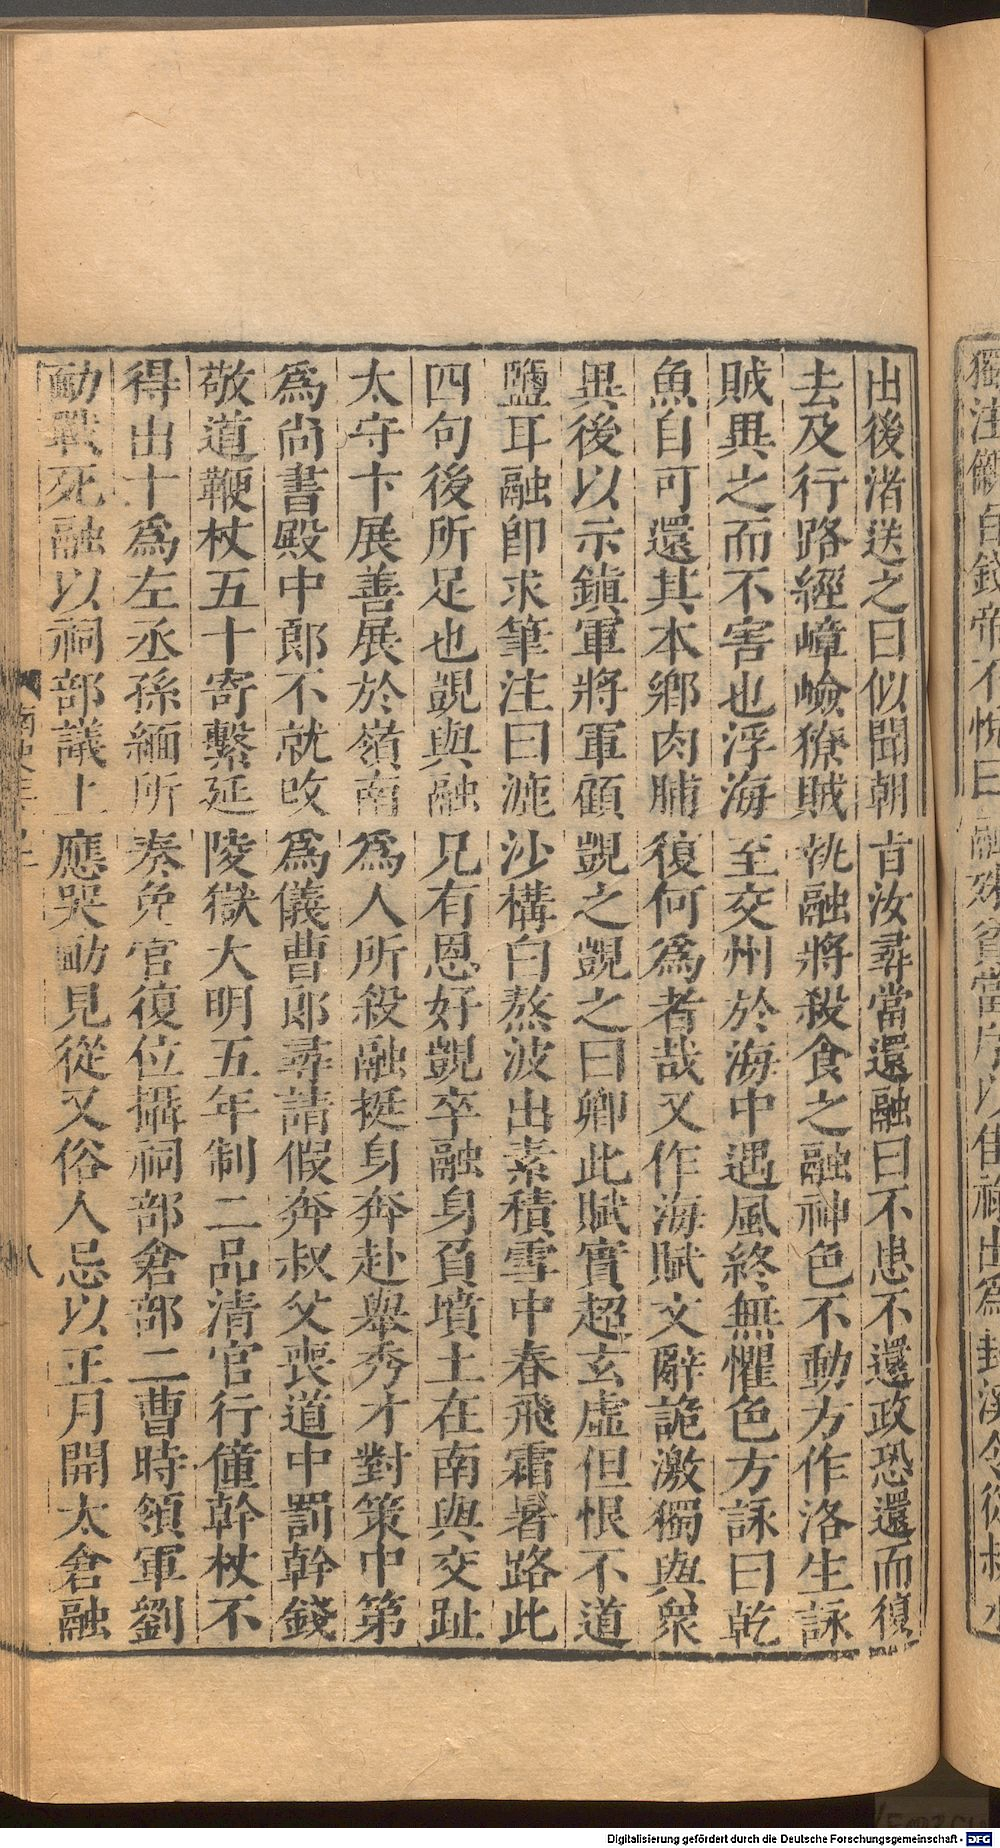 出後渚送之曰似聞朝旨汝尋當還融曰不患不還政恐還而復
去及行路經嶂嶮獠賊執融將殺食之融神色不動方作洛生詠
賊異之而不害也浮海至交州於海中遇風終無懼色方詠曰乾
魚自可還其本鄉肉脯復何爲者哉又作海賦文辭詭激獨與衆
異後以示鎮軍將軍顧覬之覬之曰卿此賦實超玄虛但恨不道
鹽耳融即求筆注曰漉沙構白熬波出素積雪中春飛霜暑路此
四句後所足也覬與融兄有恩好覬卒融身負墳土在南與交趾
太守卞展善展於嶺南爲人所殺融挺身奔赴舉秀才對策中第
爲尚書殿中郎不就改爲儀曹郎尋請假奔叔父喪道中罰幹錢
敬道鞭杖五十寄繫延陵獄大明五年制二品清官行僮幹杖不
得出十爲左丞孫緬所奏免官復位攝祠部倉部二曹時領軍劉
勔戰死融以祠部議上應哭勔見從又俗人忌以正月開太倉融
八